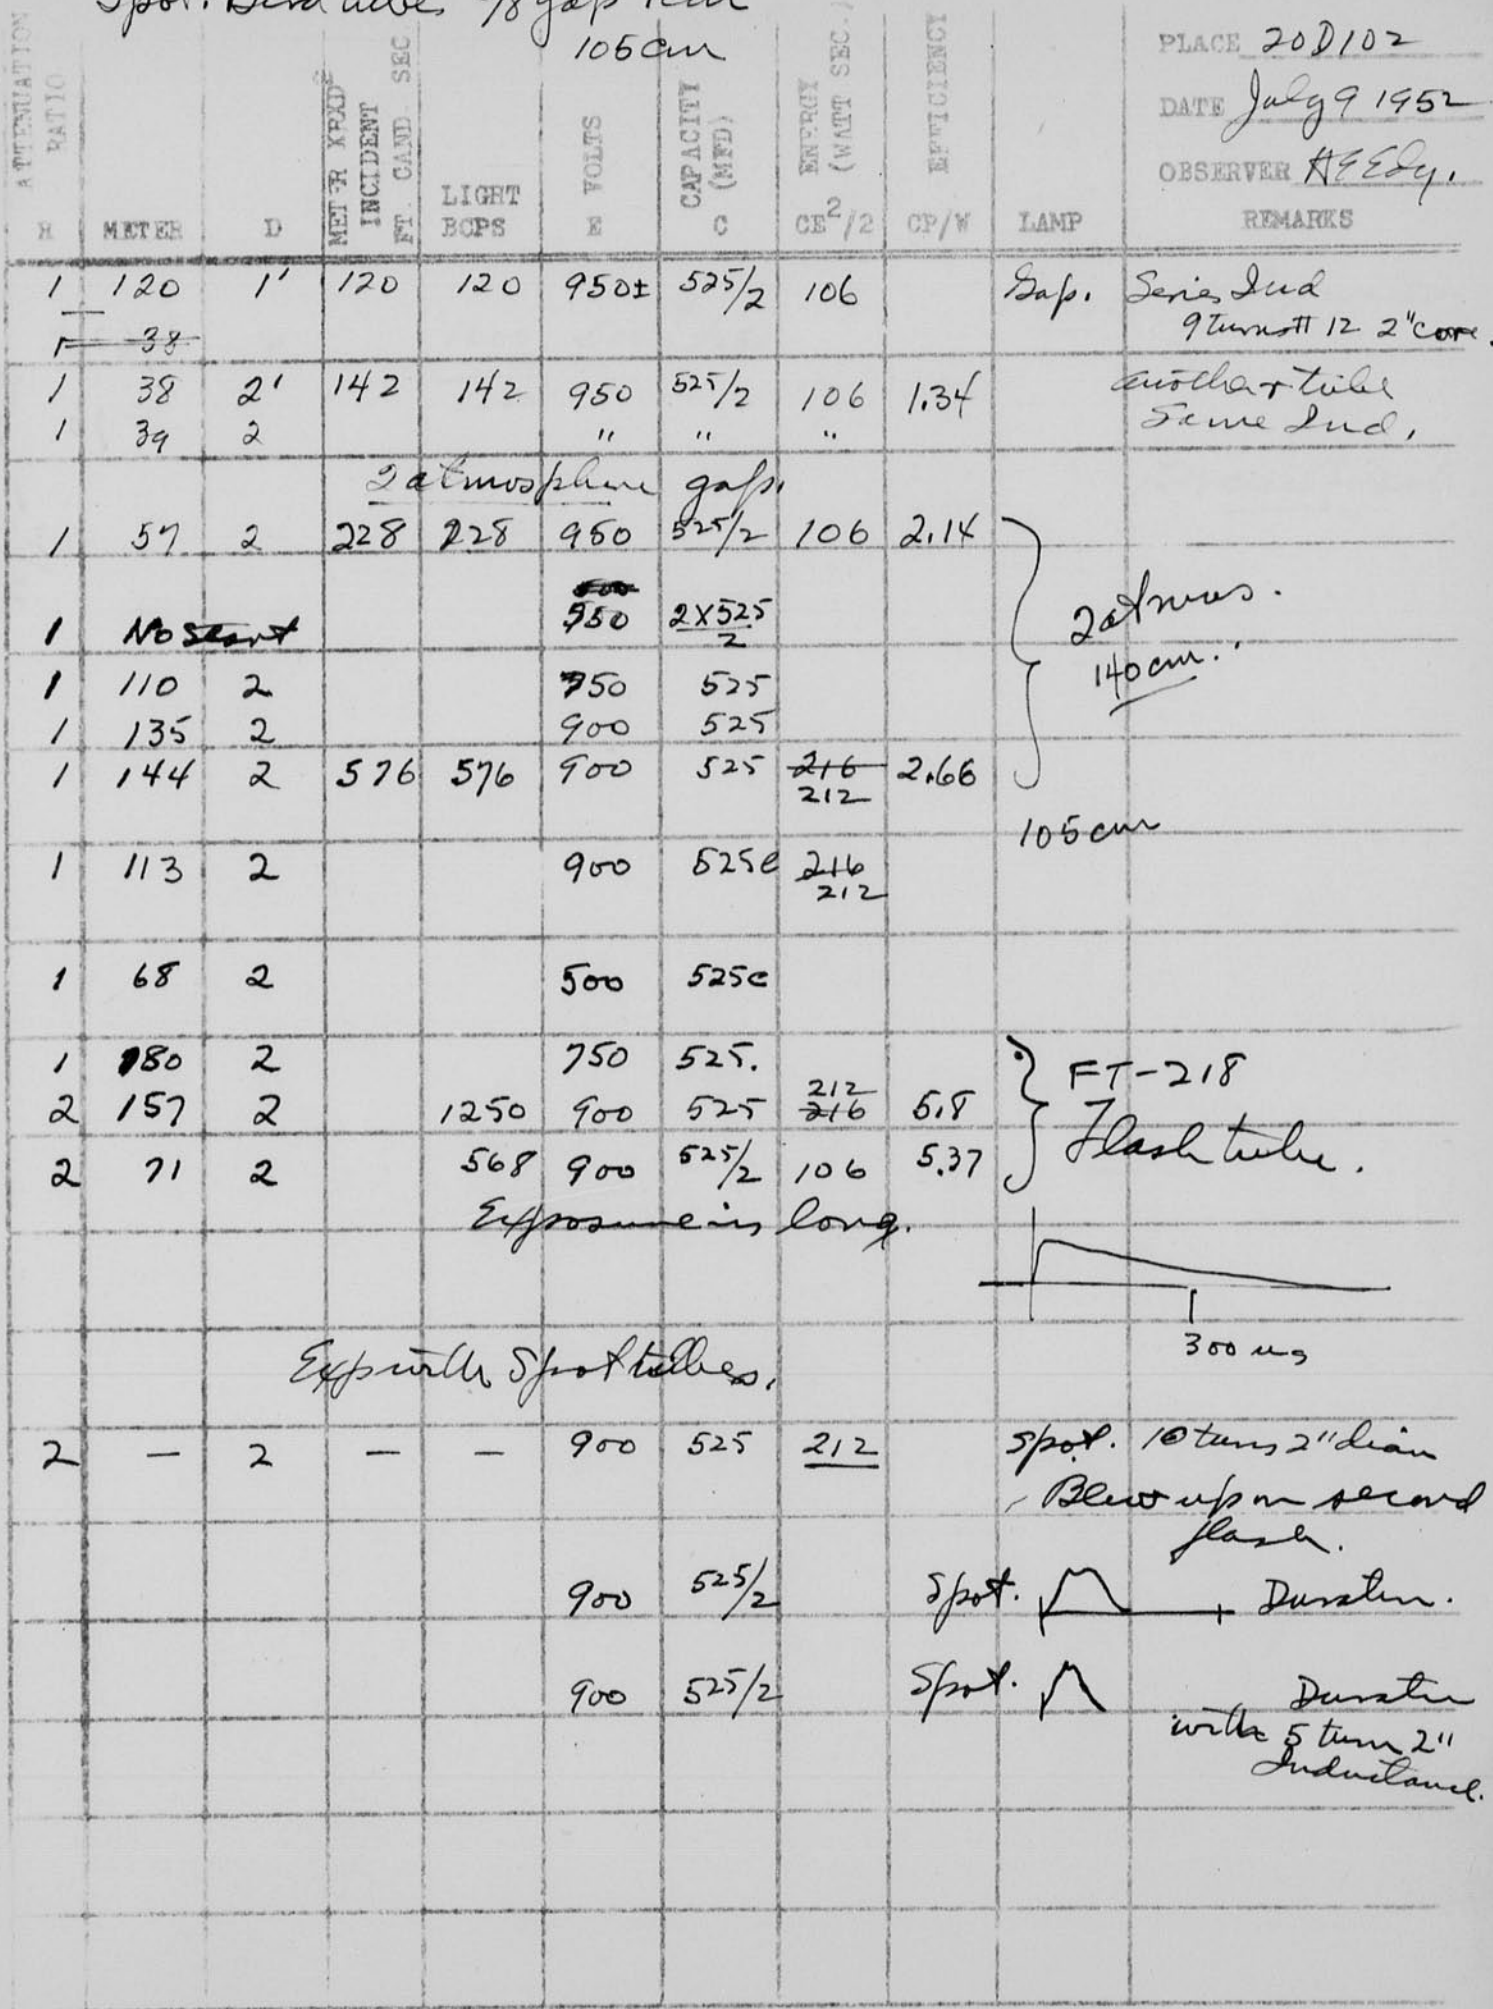 Spot. 1/8 gap
105 cm
PLACE 20D102
DATE July 9 1952
OBSERVER
ATTENUATION RATIO R METER D INCIDENT FT. CAND. SEC LIGHT BCPS VOLTS E CAPACITY (MFD) C ENERGY (WATT SEC.) CE²/2 EFFICIENCY CP/W LAMP REMARKS
1 120 1' 120 120 950± 525/2 106 Gap. Series Ind
9 turns # 12 2" core.
1 38
1 38 2' 142 142 950 525/2 106 1.34 another tube
1 39 2 " " " Same Ind.
2 atmosphere gap.
1 57 2 228 228 950 525/2 106 2.14
1 No Start 950 2X525/2
2 atmos.
140 cm.
1 110 2 750 525
1 135 2 900 525
1 144 2 576 576 900 525 216 2.66
212
105 cm
1 113 2 900 525c 216
212
1 68 2 500 525c
1 180 2 750 525. FT-218
2 157 2 1250 900 525 212 216 5.8 Flash tube.
2 71 2 568 900 525/2 106 5.37
Exposure is long.
300 us
Exp with Spot tubes.
2 — 2 — — 900 525 212 spot. 10 turns 2" diam
Blew up on second
flash.
900 525/2 Spot. Duration.
900 525/2 Spot. Duration
with 5 turn 2"
Inductance.